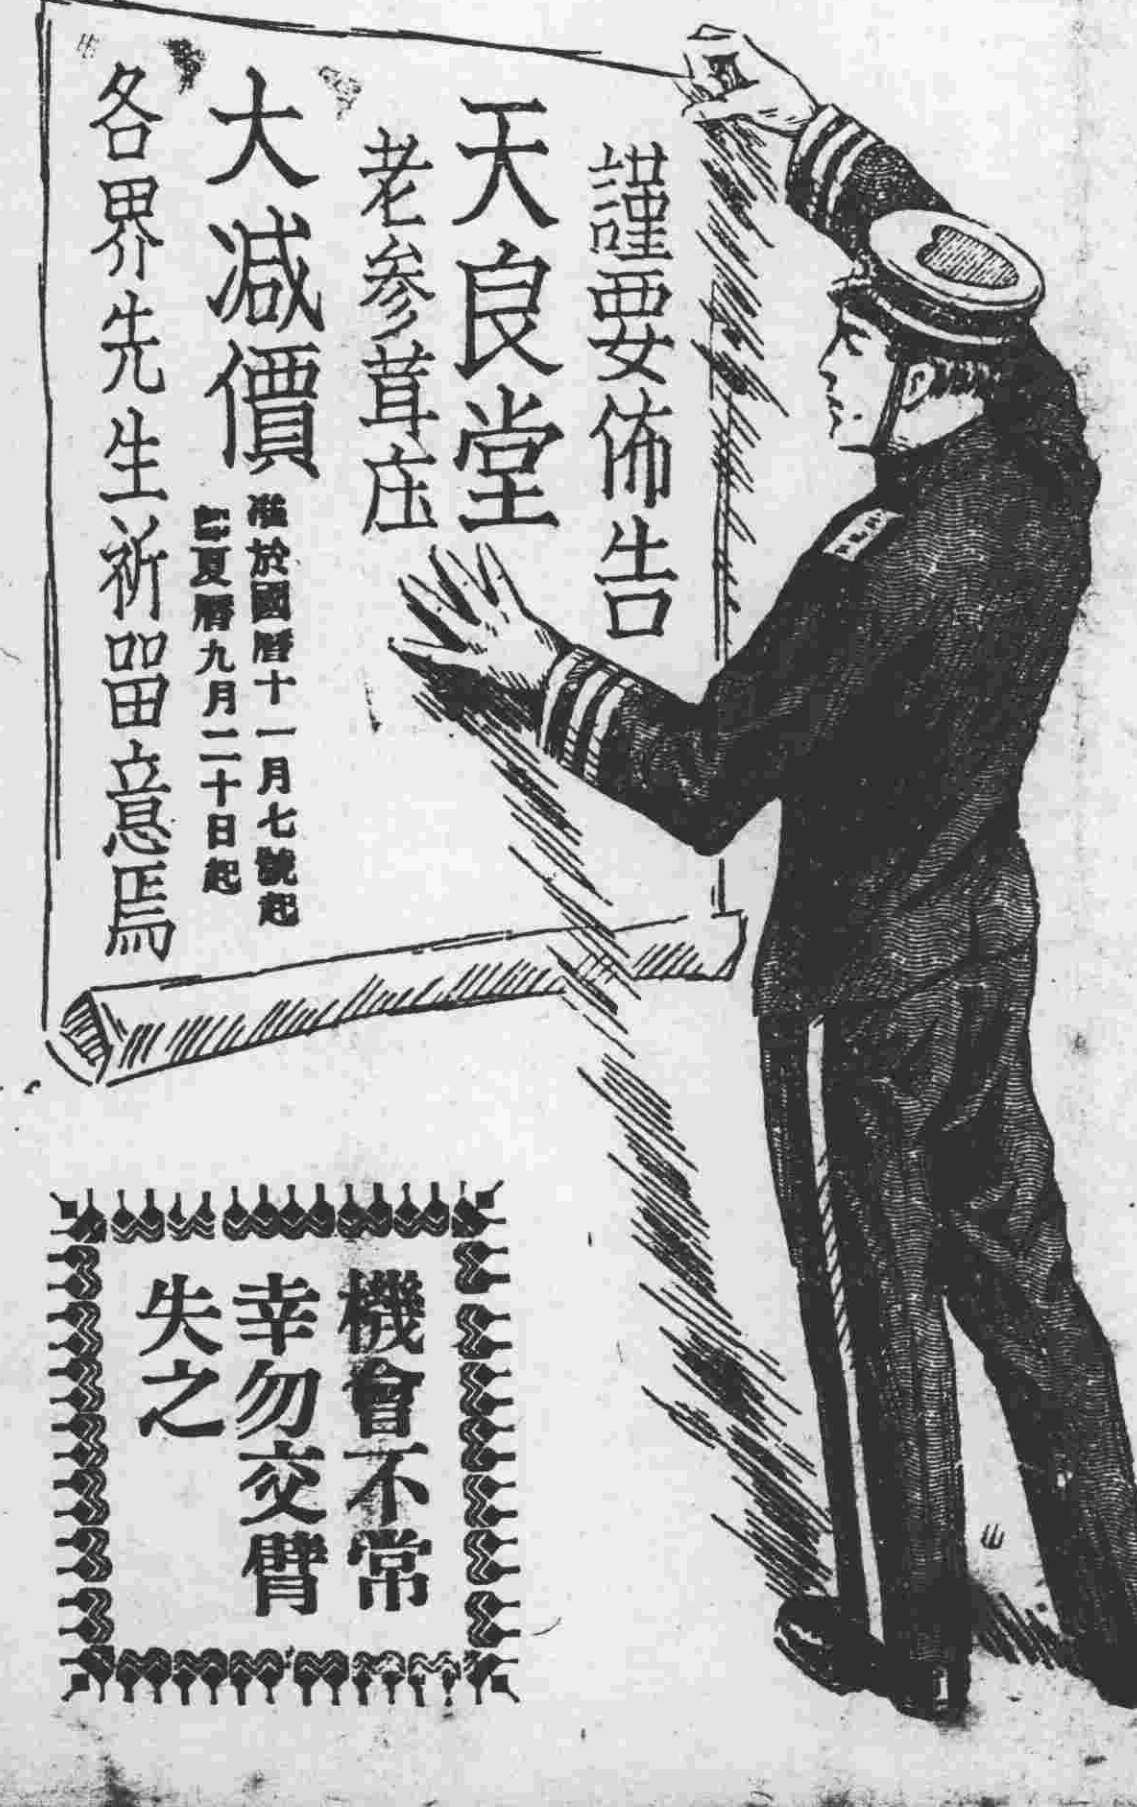 謹要佈告
天良堂
老参茸庄
大减價
準於國曆十一月七號起
即夏曆九月二十日起
各界先生祈畱意焉
機會不常
幸勿交臂
失之